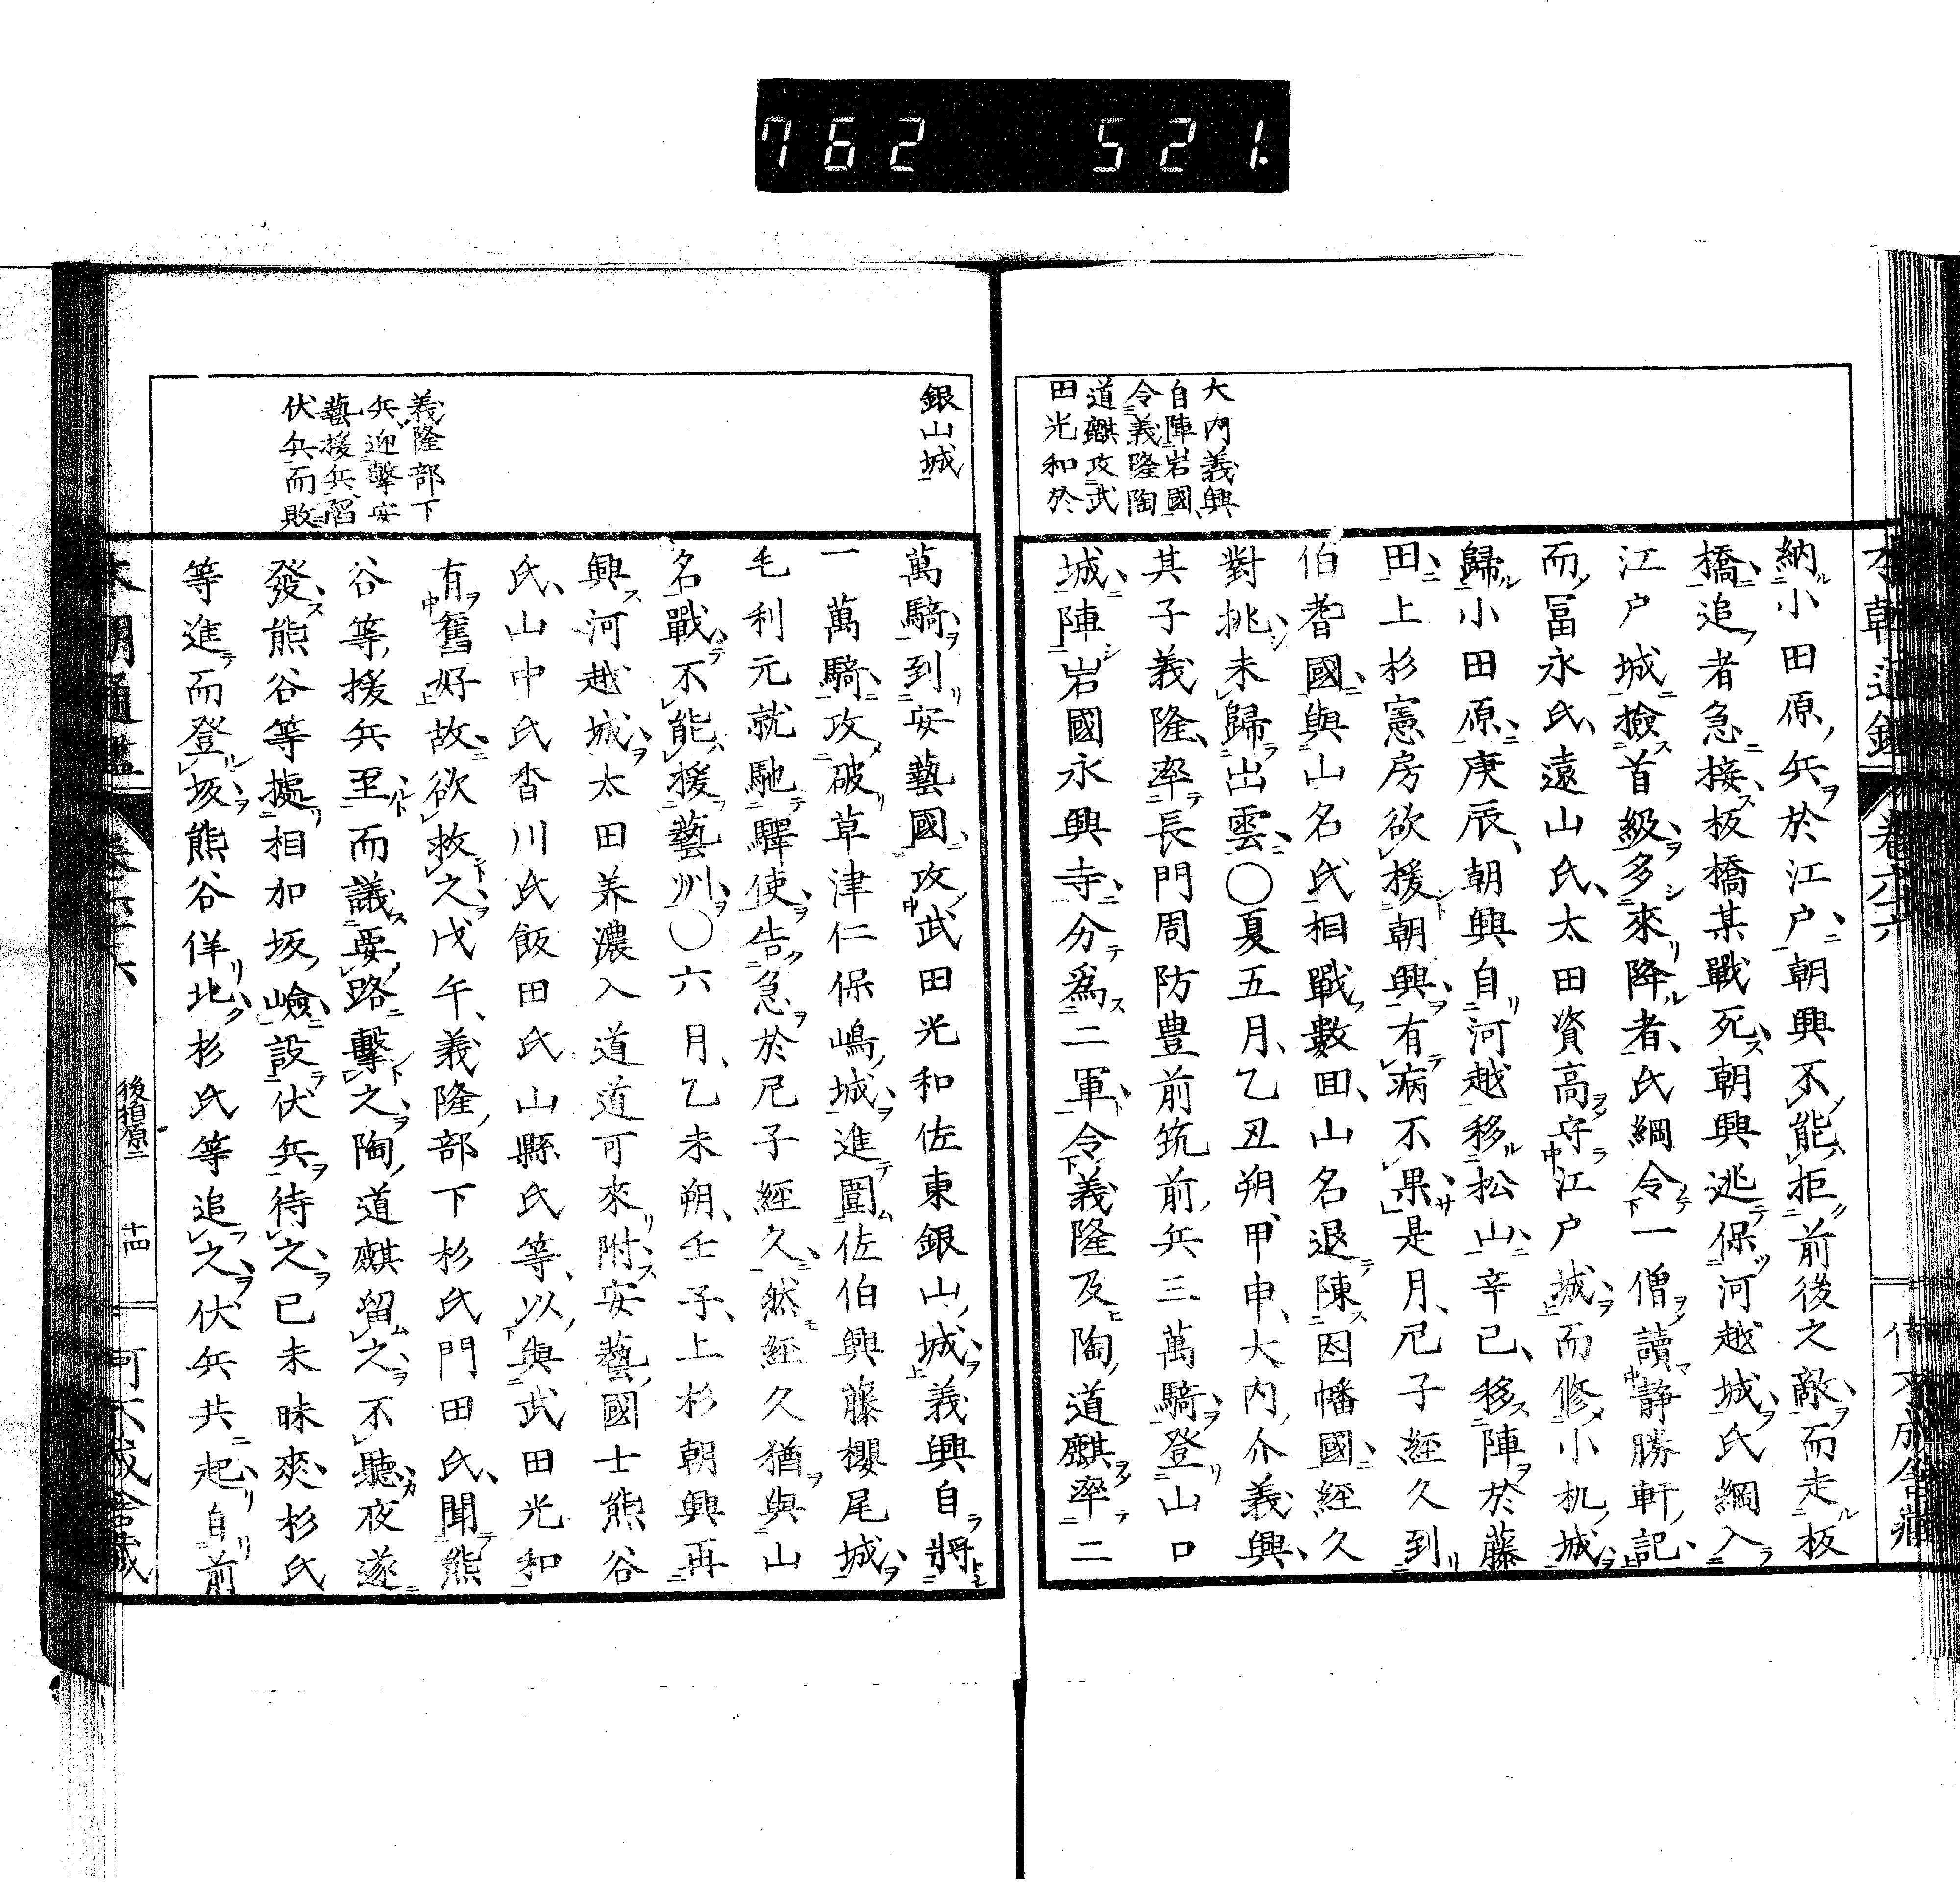 762 521.
大内義興
自陣岩國
令義隆陶
道麒攻武
田光和於
納小田原兵於江戸朝興不能拒前後之敵而走板
橋追者急接板橋某戰死朝興逃保河越城氏綱入
江戸城撿首級多來降者氏綱令一僧讀静勝軒記
而冨永氏遠山氏太田資高守江戸城而修小机城
歸小田原庚辰朝興自河越移松山辛已移陣於藤
田上杉憲房欲援朝興有病不果是月尼子經久到
伯耆國與山名氏相戰數回山名退陳因幡國經久
對挑未歸出雲〇夏五月乙丑朔甲申大内介義興
其子義隆率長門周防豊前筑前兵三萬騎登山口
城陣岩國永興寺分爲二軍令義隆及陶道麒率二
銀山城
義隆部下
兵迎擊安
藝援兵陷
伏兵而敗
萬騎到安藝國攻武田光和佐東銀山城義興自將
一萬騎攻破草津仁保嶋城進圍佐伯興藤櫻尾城
毛利元就馳驛使告急於尼子經久然經久猶與山
名戰不能援藝州〇六月乙未朔壬子上杉朝興再
興河越城太田养濃入道道可來附安藝國士熊谷
氏山中氏香川氏飯田氏山縣氏等以與武田光和
有舊好故欲救之戊午義隆部下杉氏門田氏聞熊
谷等援兵至而議要路擊之陶道麒留之不聽夜遂
發熊谷等據相加坂嶮設伏兵待之已未昧爽杉氏
等進而登坂熊谷佯北杉氏等追之伏兵共起自前
後柏原二
十四